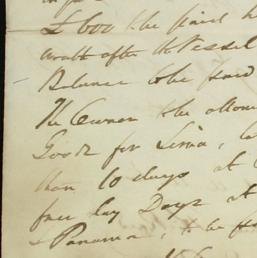 £600 to be paid h
Month after the Vessel
Balance to be paid
The Owner to be allow
Goods for Lima, to
than 10 days at
free lay Days at
& Panama, to be